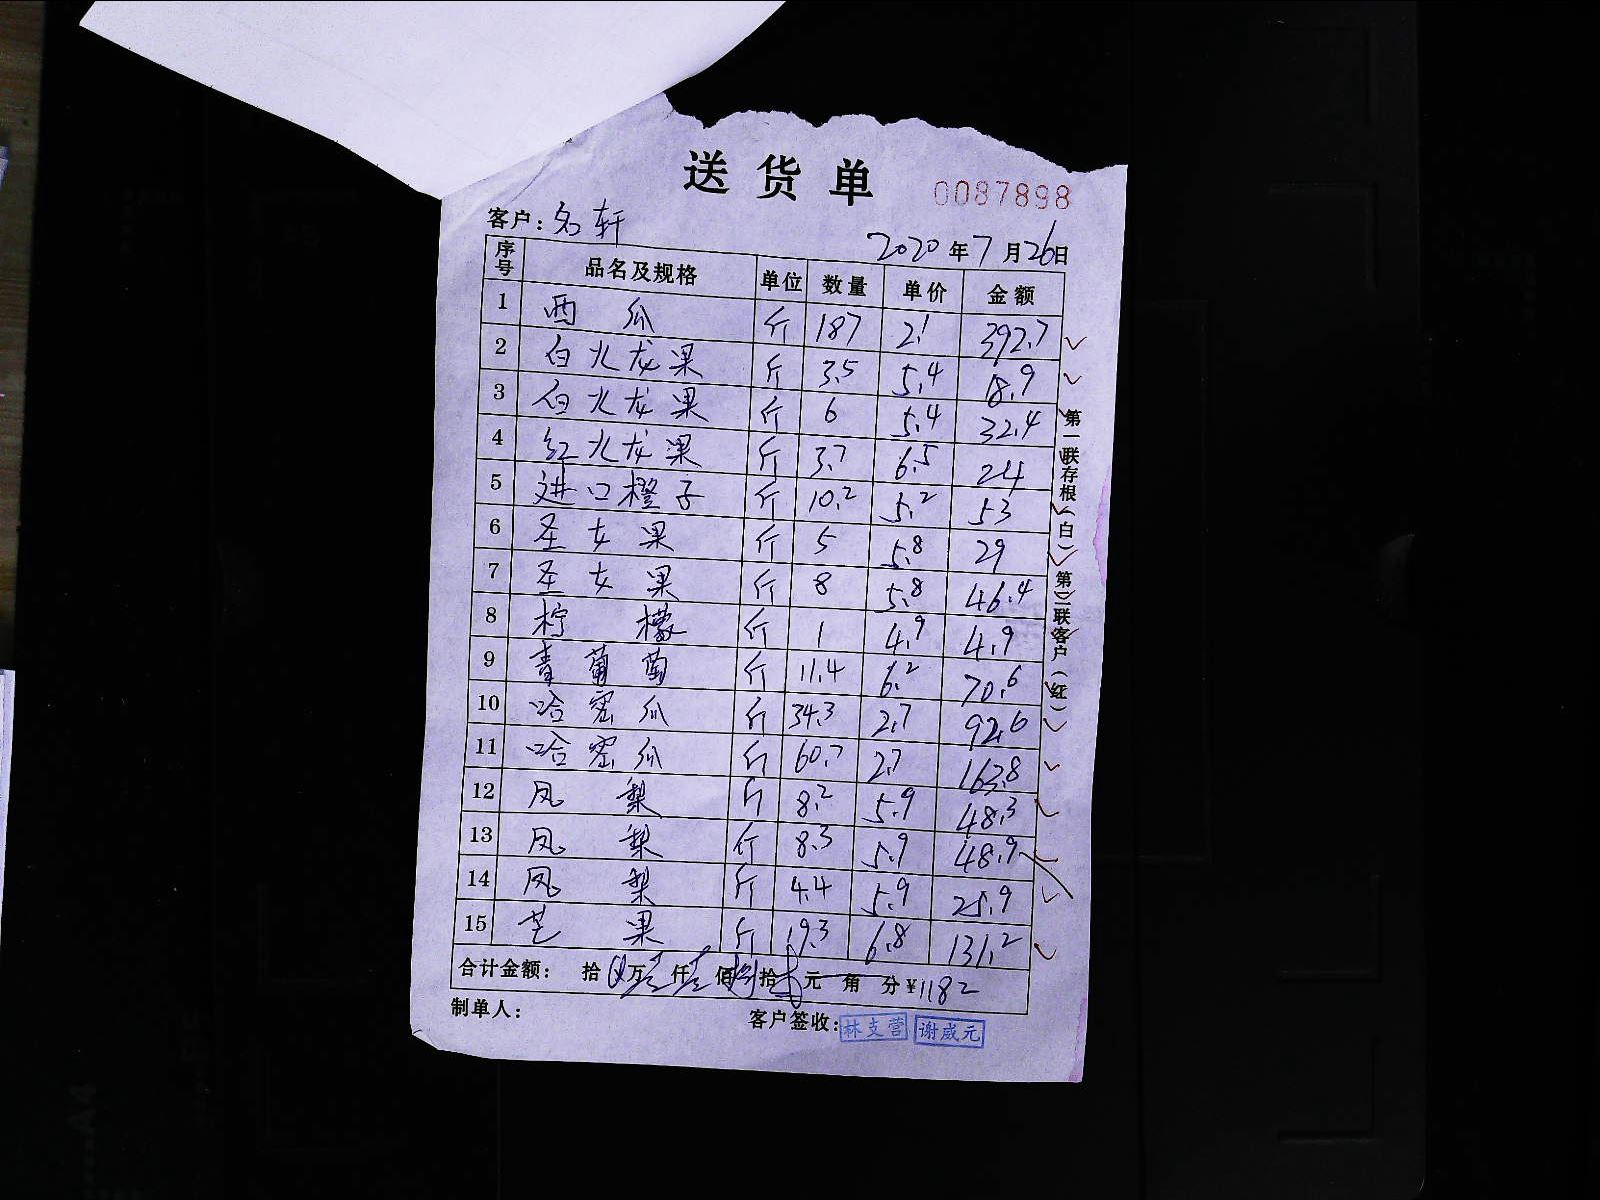 送货单
0087898
客户：名轩
2020年7月26日
序号 品名及规格 单位 数量 单价 金额
1 西瓜 斤 187 2.1 392.7
2 白火龙果 斤 3.5 5.4 18.9
3 白火龙果 斤 6 5.4 32.4
4 红火龙果 斤 3.7 6.5 24
5 进口橙子 斤 10.2 5.2 53
6 圣女果 斤 5 5.8 29
7 圣女果 斤 8 5.8 46.4
8 柠檬 斤 1 4.9 4.9
9 青葡萄 斤 11.4 6.2 70.6
10 哈密瓜 斤 34.3 2.7 92.6
11 哈密瓜 斤 60.7 2.7 163.8
12 凤梨 斤 8.2 5.9 48.3
13 凤梨 斤 8.3 5.9 48.9
14 凤梨 斤 4.4 5.9 25.9
15 芒果 斤 19.3 6.8 131.2
合计金额： 拾 万壹仟壹佰捌拾贰元 角 分¥1182
制单人：
客户签收：林支营 谢威元
第一联存根（白） 第二联客户（红）